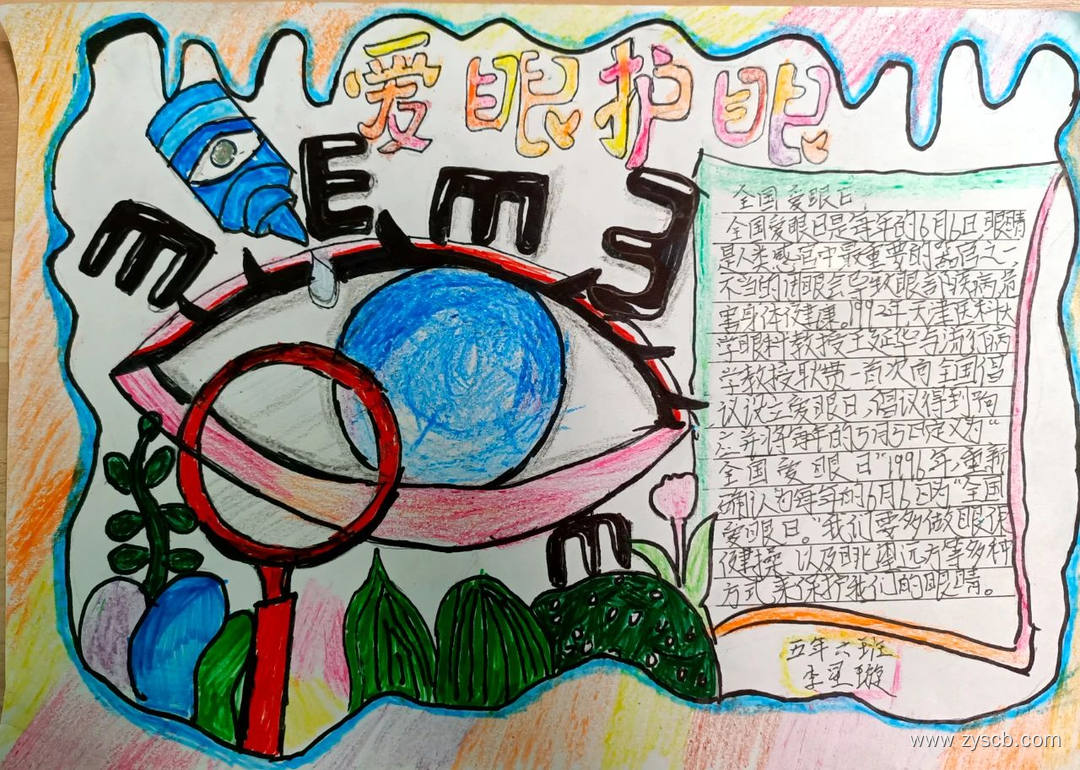 爱眼护眼
E
m
m
m
m
全国爱眼日
全国爱眼日是每年的6月6日眼睛
是人类感官中最重要的器官之一,
不当的用眼会导致眼部疾病危
害身体健康。1992年天津医科大
学眼科教授王延华与流行病
学教授耿贯一首次向全国倡
议设立爱眼日,倡议得到响
应并将每年的5月5日定义为“
全国爱眼日”1996年,重新
确认为每年的6月6日为“全国
爱眼日。”我们要多做眼保
健操,以及眺望远方等多种
方式来保护我们的眼睛。
五年六班
李 璇
www.zyscb.com